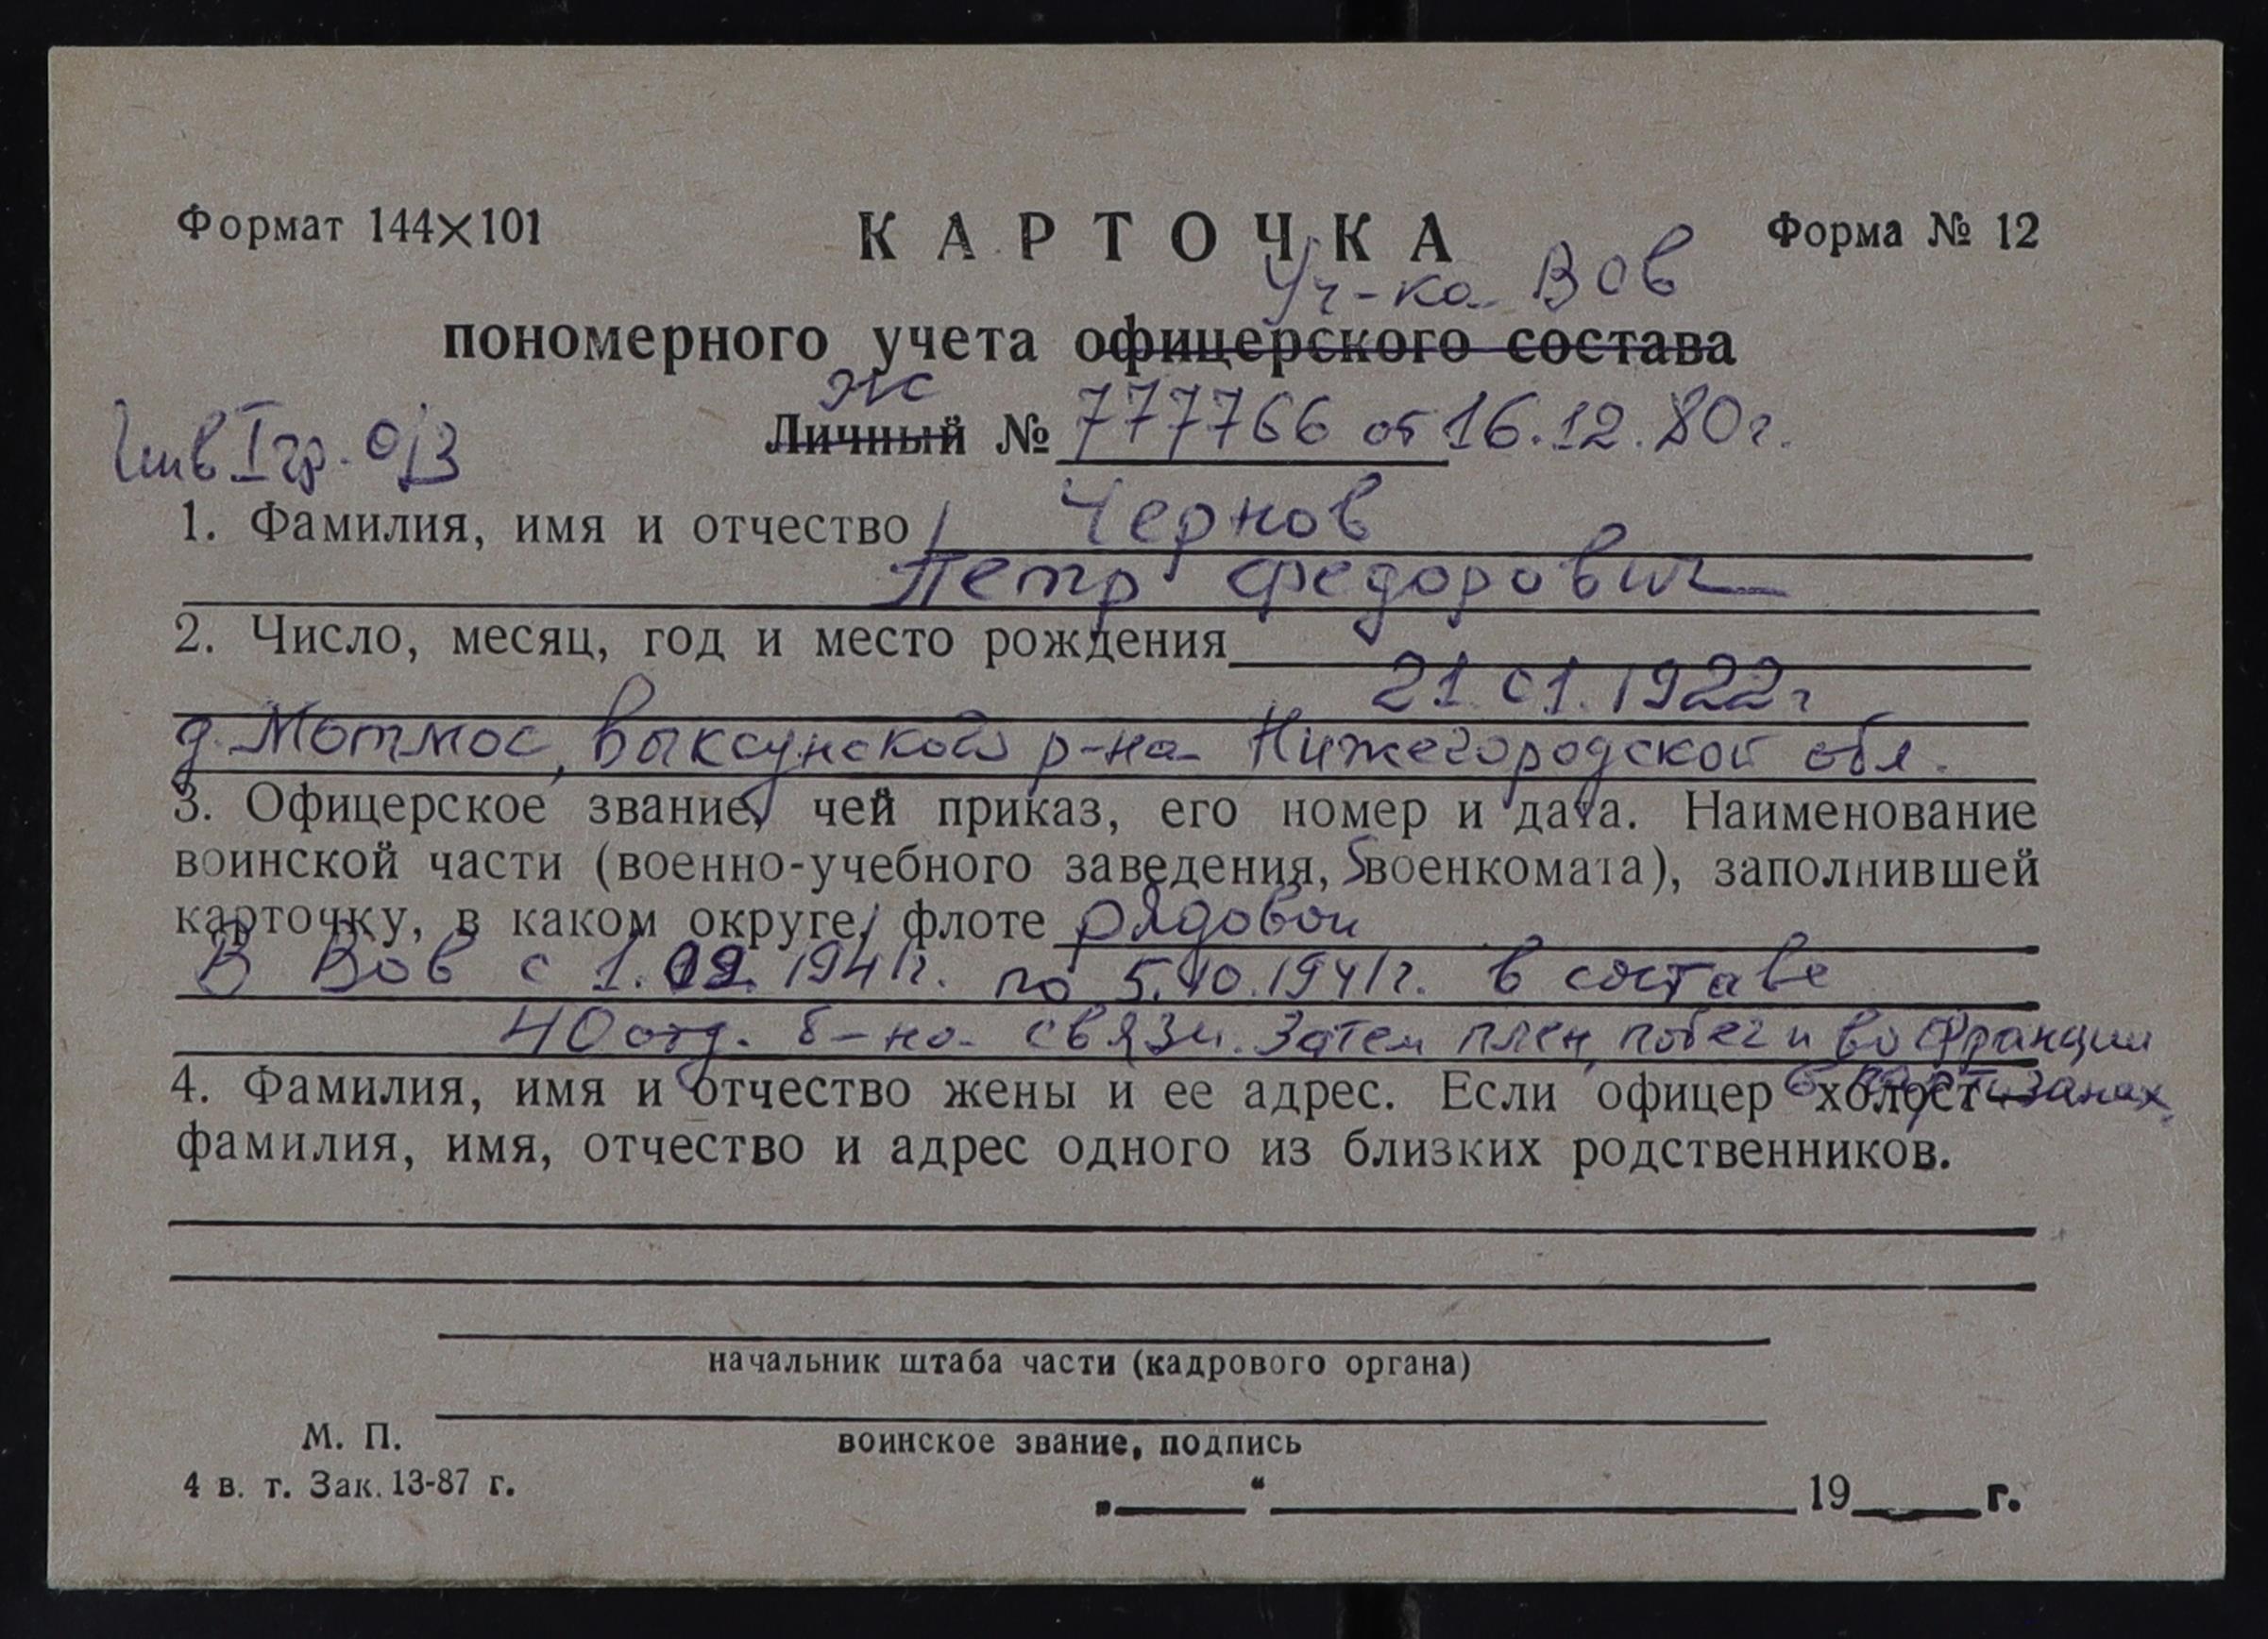 Формат 144×101 КАРТОЧКА Форма № 12
Уч-ка ВОВ
пономерного учета офицерского состава
Ж
Инв I гр. о/з Личный № 777766 от 16.12.80г.
1. Фамилия, имя и отчество Чернов
Петр Федорович
2. Число, месяц, год и место рождения
21.01.1922г
д. Мотмос, Выксунского р-на Нижегородской обл.
3. Офицерское звание, чей приказ, его номер и дата. Наименование
воинской части (военно-учебного заведения, военкомата), заполнившей
карточку, в каком округе, флоте рядовой
В ВОВ с 1.09.1941г. по 5.10.1941г. в составе
40 отд. б-на связи. Затем плен, побег и во Франции
в партизанах
4. Фамилия, имя и отчество жены и ее адрес. Если офицер холост —
фамилия, имя, отчество и адрес одного из близких родственников.
начальник штаба части (кадрового органа)
М. П.
воинское звание, подпись
4 в. т. Зак. 13-87 г.
„ “ 19 г.